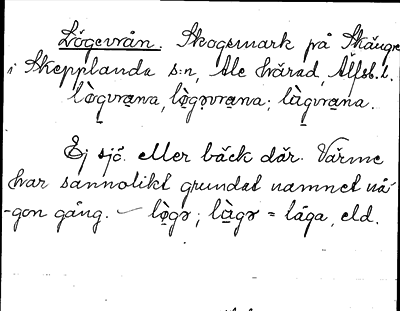 Lögevrån. Skogsmark på Skånge
i Skepplanda s:n, Ale härad, Älfsb. l.
lȯ̬gvrana, lȯ̬gǝvrana; lȧ̬gvrana.
Ej sjö eller bäck där. Värme
har sannolikt grundat namnet nå-
-gon gång. — lȯ̬gǝ; lȧ̬gǝ = låga, eld.